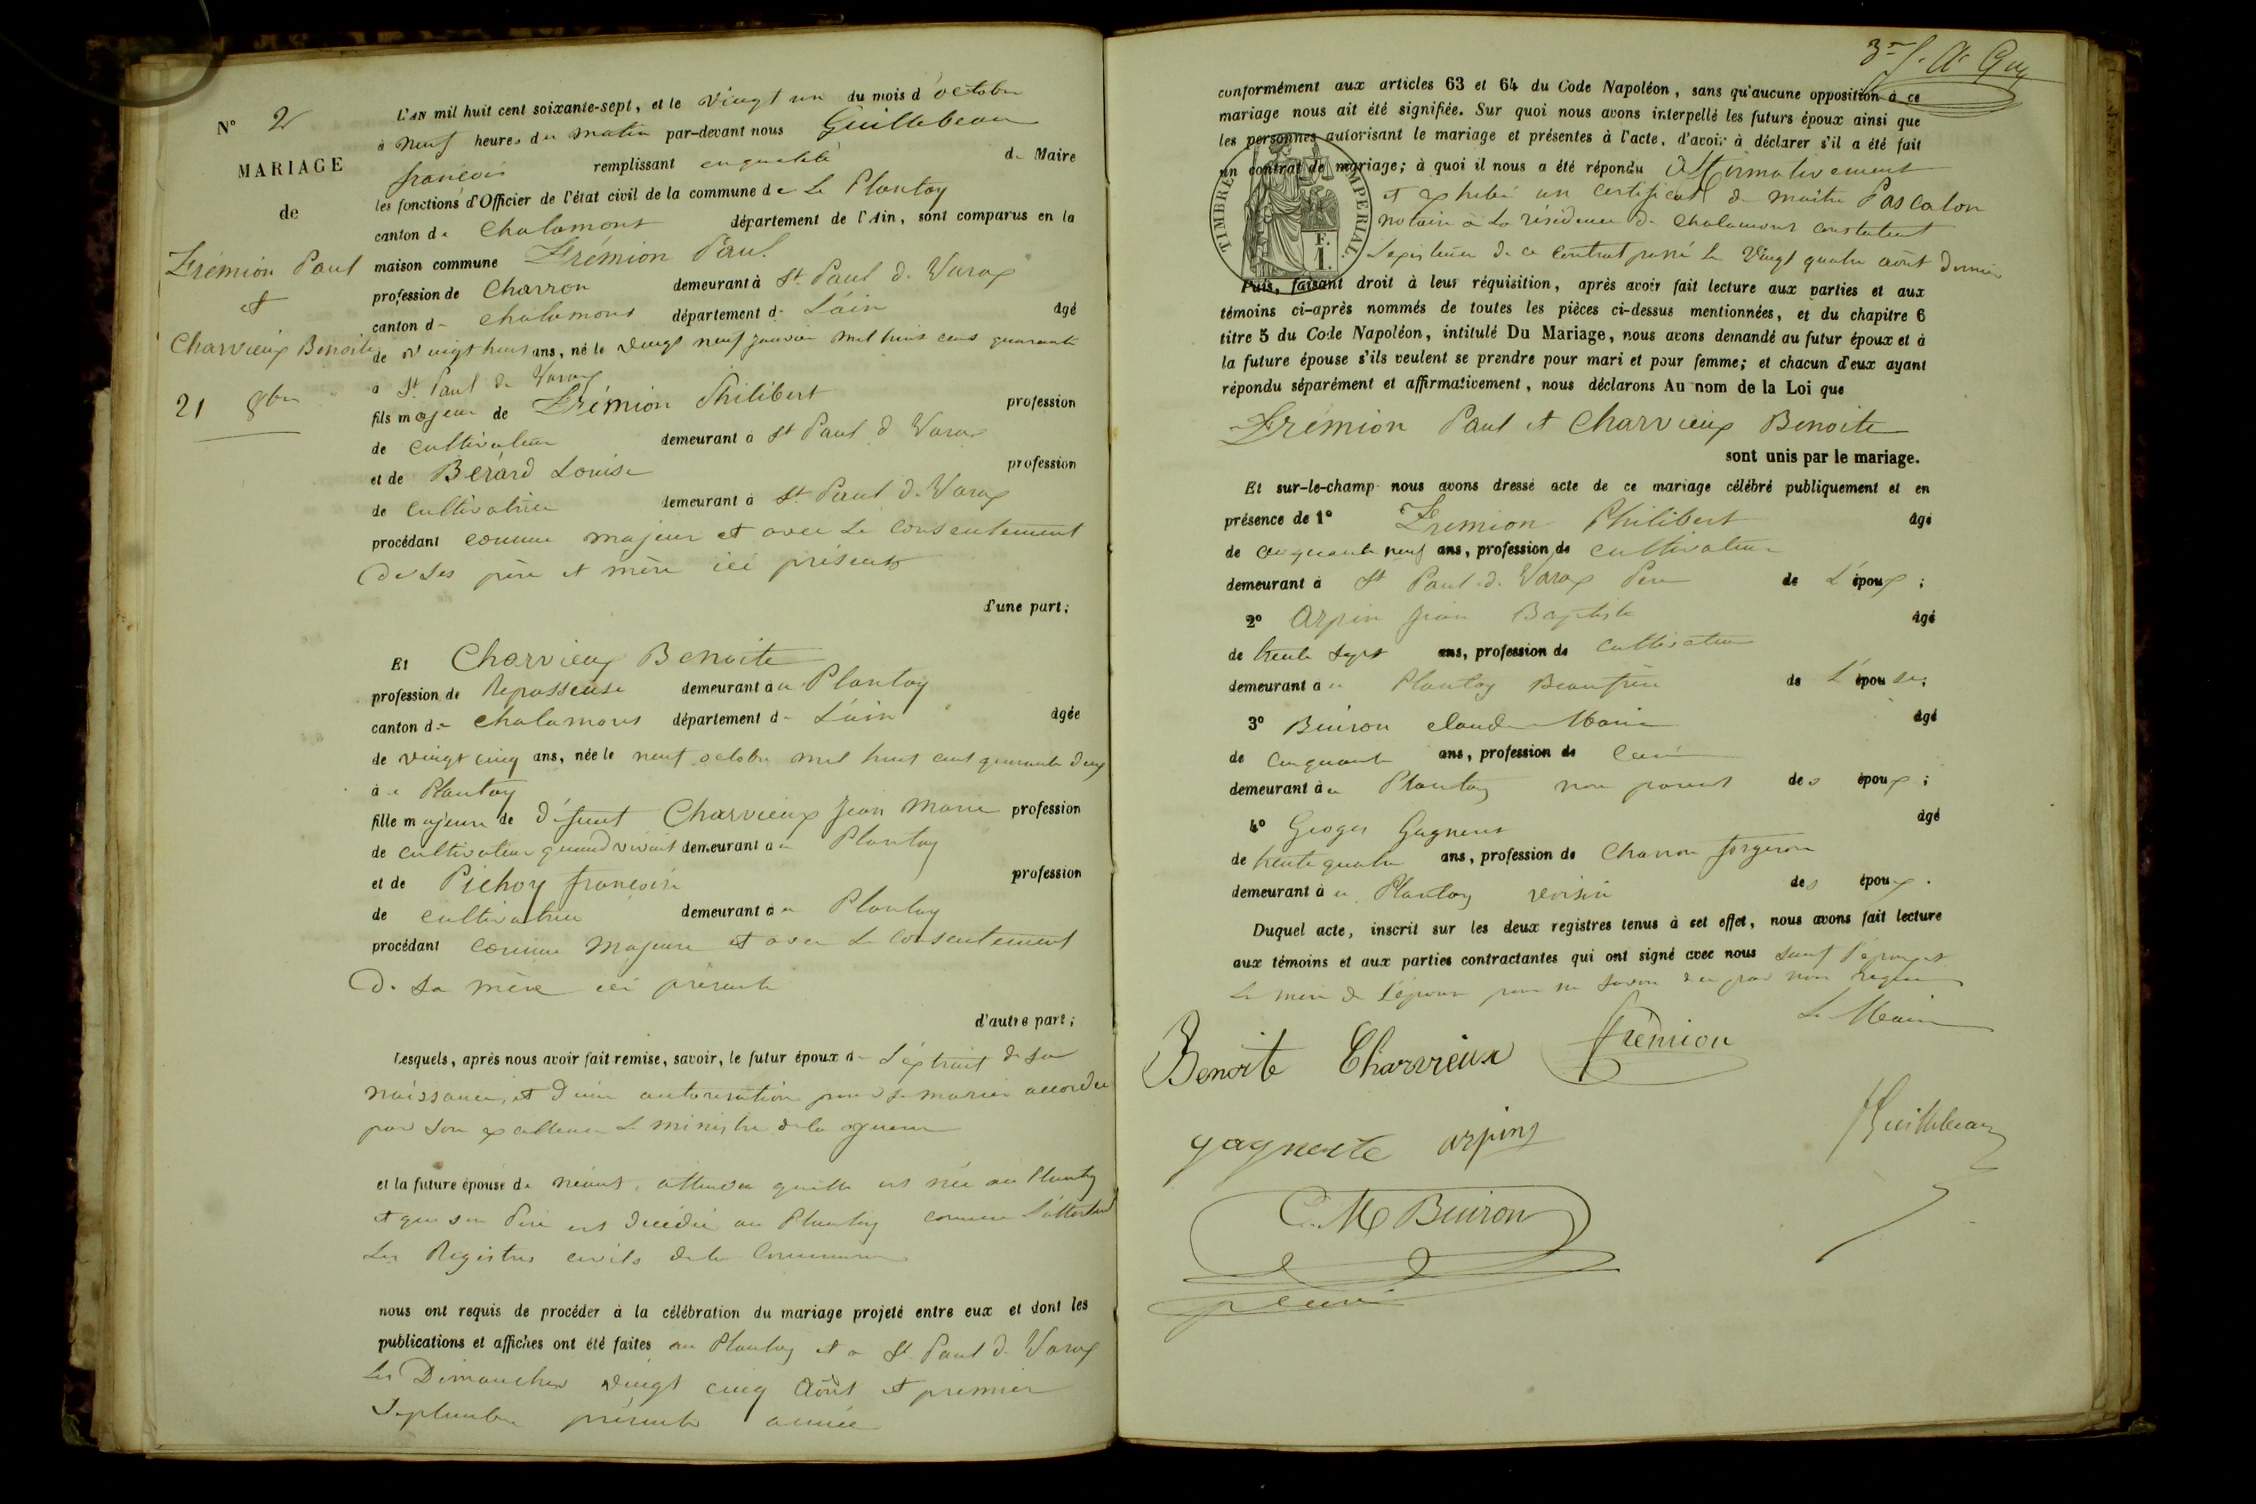 N° 2
MARIAGE
de
Frémion Paul
et
Charvieux Benoite
21 8bre
L'AN mil huit cent soixante-sept, et le vingt un du mois d'octobre
à neuf heures du matin par-devant nous Guillebeau
françois remplissant en qualité de Maire
les fonctions d'Officier de l'état civil de la commune de Le Plantay
canton de Chalamont département de l'Ain, sont comparus en la
maison commune Frémion Paul
profession de Charron demeurant à St Paul de Varax
canton de Chalamont département de L'ain âgé
de vingt huit ans, né le vingt neuf janvier mil huit cent quarante
à St Paul de Varax
fils majeur de Frémion Philibert profession
de cultivateur demeurant à St Paul de Varax
et de Bérard Louise profession
de cultivatrice demeurant à St Paul de Varax
procédant comme majeur et avec le consentement
de ses père et mère ici présents
d'une part;
Et Charvieux Benoite
profession de Repasseuse demeurant au Plantay
canton de Chalamont département de L'ain âgée
de vingt cinq ans, née le neuf octobre mil huit cent quarante deux
à Plantay
fille majeure de défunt Charvieux Jean Marie profession
de cultivateur quand vivait demeurant au Plantay
et de Pichoy françoise profession
de cultivatrice demeurant au Plantay
procédant comme Majeure et avec le consentement
de sa mère ici présente
d'autre part;
Lesquels, après nous avoir fait remise, savoir, le futur époux de L'extrait de sa
naissance, et d'une autorisation pour se marier accordée
par son excellence le ministre de la guerre
et la future épouse de néant, attendu qu'elle est née au Plantay
et que son Père est décédé au Plantay comme l'attestent
les Registres civils de la Commune
nous ont requis de procéder à la célébration du mariage projeté entre eux et dont les
publications et affiches ont été faites au Plantay et à St Paul de Varax
les Dimanches vingt cinq Août et premier
Septembre présente année
conformément aux articles 63 et 64 du Code Napoléon, sans qu'aucune opposition à ce
mariage nous ait été signifiée. Sur quoi nous avons interpellé les futurs époux ainsi que
les personnes autorisant le mariage et présentes à l'acte, d'avoir à déclarer s'il a été fait
un contrat de mariage; à quoi il nous a été répondu affirmativement
et exhibé un certificat de maître Pascalon
notaire à la résidence de Chalamont constatant
L'existence de ce contrat passé le Vingt quatre août dernier
TIMBRE IMPERIAL.
F.
1.
Puis, faisant droit à leur réquisition, après avoir fait lecture aux parties et aux
témoins ci-après nommés de toutes les pièces ci-dessus mentionnées, et du chapitre 6
titre 5 du Code Napoléon, intitulé Du Mariage, nous avons demandé au futur époux et à
la future épouse s'ils veulent se prendre pour mari et pour femme; et chacun d'eux ayant
répondu séparément et affirmativement, nous déclarons Au nom de la Loi que
Frémion Paul et Charvieux Benoite
sont unis par le mariage.
Et sur-le-champ nous avons dressé acte de ce mariage célébré publiquement et en
présence de 1° Fremion Philibert âgé
de cinquante neuf ans, profession de cultivateur
demeurant à St Paul de Varax Père de L'époux;
2° Arpin Jean Baptiste âgé
de trente sept ans, profession de cultivateur
demeurant au Plantay Beaufrère de L'épouse;
3° Buiron Claude Marie âgé
de cinquante ans, profession de Curé
demeurant au Plantay non parent des époux;
4° Gagneur âgé
de trente quatre ans, profession de Charron forgeron
demeurant à au Plantay voisin des époux.
Duquel acte, inscrit sur les deux registres tenus à cet effet, nous avons fait lecture
aux témoins et aux parties contractantes qui ont signé avec nous sauf
la mère de l'époux pour ne savoir
Le Maire
Benoite Charvieux Frémion
Guillebeau
arpin
C. M Buiron
curé